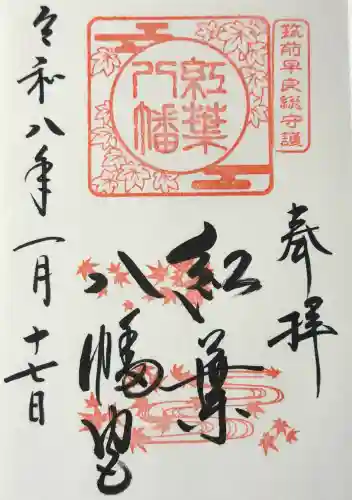 筑前早良総守護
奉拝
紅葉
八幡
紅葉
八幡宮
令和八年一月十七日